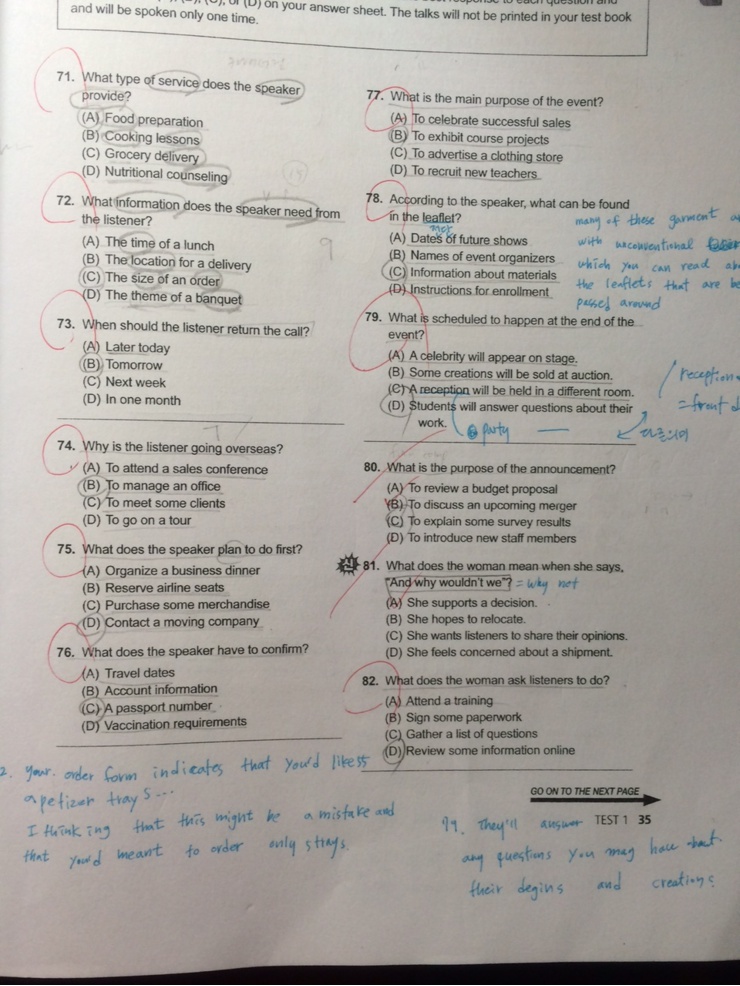 and will be spoken only one time.
(D) on your answer sheet. The talks will not be printed in your test book
71. What type of service does the speaker
provide?
(A) Food preparation
(B) Cooking lessons
(C) Grocery delivery
(D) Nutritional counseling
72. What information does the speaker need from
the listener?
(A) The time of a lunch
(B) The location for a delivery
(C) The size of an order
(D) The theme of a banquet
9
73. When should the listener return the call?
(A) Later today
(B) Tomorrow
(C) Next week
(D) In one month
74. Why is the listener going overseas?
(A) To attend a sales conference
(B) To manage an office
(C) To meet some clients
(D) To go on a tour
75. What does the speaker plan to do first?
(A) Organize a business dinner
(B) Reserve airline seats
(C) Purchase some merchandise
(D) Contact a moving company
76. What does the speaker have to confirm?
(A) Travel dates
(B) Account information
(C) A passport number
(D) Vaccination requirements
2. your order form indicates that you'd like 55
apetizer trays...
I thinking that this might be a mistake and
that you'd meant to order only 5 trays.
77. What is the main purpose of the event?
(A) To celebrate successful sales
(B) To exhibit course projects
(C) To advertise a clothing store
(D) To recruit new teachers
78. According to the speaker, what can be found
in the leaflet?
(A) Dates of future shows
(B) Names of event organizers
(C) Information about materials
(D) Instructions for enrollment
many of these garment
with unconventional
which you can read
the leaflets that are
passed around
79. What is scheduled to happen at the end of the
event?
(A) A celebrity will appear on stage.
(B) Some creations will be sold at auction.
(C) A reception will be held in a different room.
(D) Students will answer questions about their
work.
party
reception
= front
80. What is the purpose of the announcement?
(A) To review a budget proposal
(B) To discuss an upcoming merger
(C) To explain some survey results
(D) To introduce new staff members
81. What does the woman mean when she says,
"And why wouldn't we"? = why not
(A) She supports a decision.
(B) She hopes to relocate.
(C) She wants listeners to share their opinions.
(D) She feels concerned about a shipment.
82. What does the woman ask listeners to do?
(A) Attend a training
(B) Sign some paperwork
(C) Gather a list of questions
(D) Review some information online
GO ON TO THE NEXT PAGE
TEST 1 35
79. They'll answer
any questions you may have about
their degins and creations